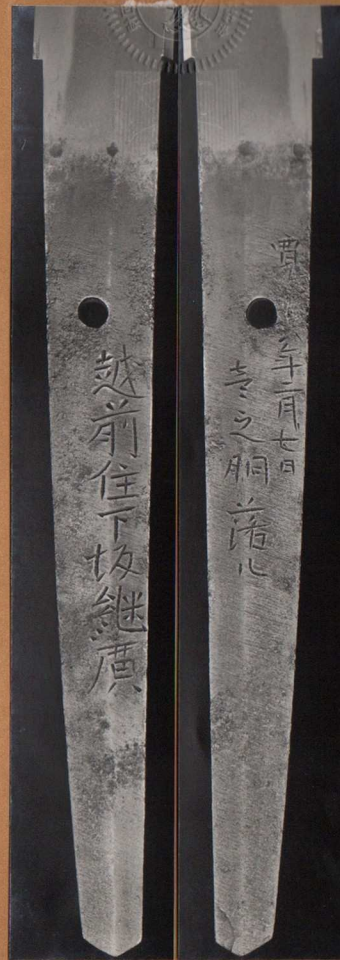 越前住下坂継廣
年二月七日
壱之胴落ル